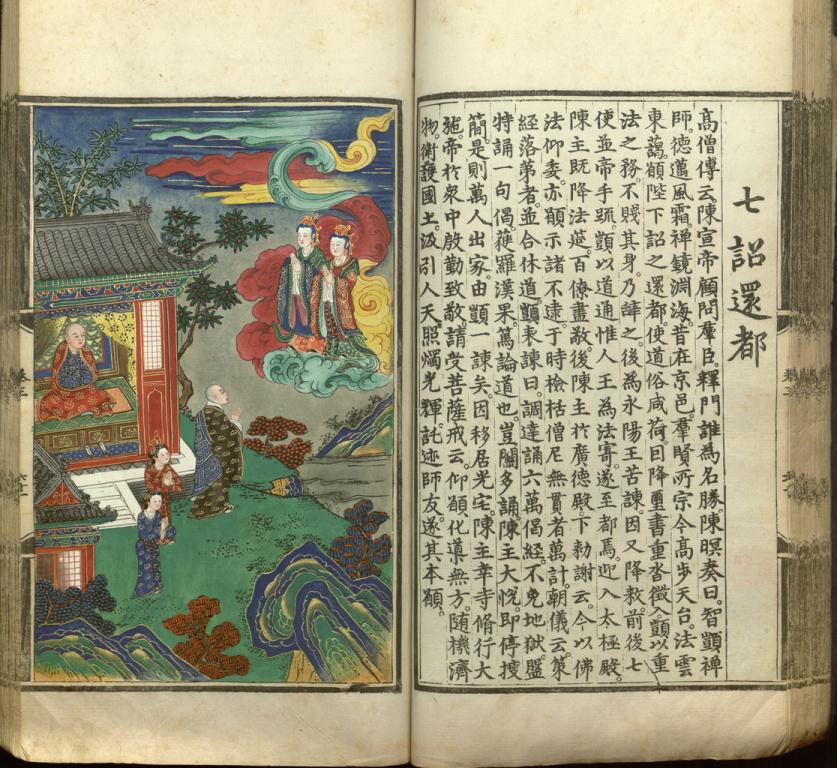 七詔還都
高僧傳云。陳宣帝顧問羣臣。釋門誰為名勝。陳暝奏曰。智顗禪
師。德邁風霜。禪鏡淵海。昔在京邑。羣賢所宗。今高步天台。法雲
東藹。願陛下詔之還都。使道俗咸荷。因降璽書重沓徵入。顗以重
法之務。不賤其身。乃辭之。後為永陽王苦諫。因又降敕。前後七
使。並帝手疏。顗以道通惟人。王為法寄。遂至都焉。迎入太極殿。
陳主既降法筵。百僚盡敬。後陳主於廣德殿。下勅謝云。今以佛
法仰委。亦願示諸不逮。于時檢括僧尼。無貫者萬計。朝儀云。策
經落第者。並合休道。顗表諫曰。調達誦六萬偈經。不免地獄。盤
特誦一句偈。獲羅漢果。篤論道也。豈關多誦。陳主大悅。即停搜
簡。是則萬人出家。由顗一諫矣。因移居光宅。陳主幸寺。脩行大
施。帝於眾中。殷勤致敬。請受菩薩戒云。仰願化導無方。隨機濟
物。衛護國土。汲引人天。照燭光輝。託迹師友。遂其本願。